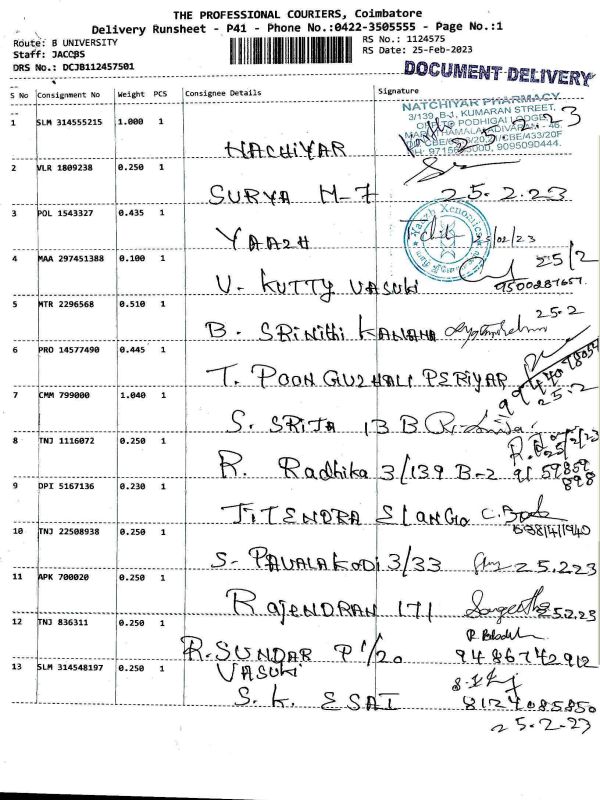 THE PROFESSIONAL COURIERS, Coimbatore
Delivery Runsheet - P41 - Phone No.:0422-3505555 - Page No.:1
Route: B UNIVERSITY
RS No.: 1124575
Staff: JACCBS
RS Date: 25-Feb-2023
DRS No.: DCJB112457501
DOCUMENT DELIVERY
S No Consignment No Weight PCS Consignee Details Signature
NATCHIYAR PHARMACY
3/139, B-J, KUMARAN STREET,
1 SLM 314555215 1.000 1 NACHIYAR 25.2.23
2 VLR 1809238 0.250 1 SURYA M-7 25.2.23
3 POL 1543327 0.435 1 YAAZH 25/02/23
4 MAA 297451388 0.100 1 V- KUTTY VASUKI 25/2
5 MTR 2296568 0.510 1 B. SRINITHI 25.2
6 PRO 14577490 0.445 1 T. POONGUZHALI PERIYAR
25.2
7 CMM 799000 1.040 1 S. SRIJA 13 B
8 TNJ 1116072 0.250 1 R. Radhika 3/139 B-2
9 DPI 5167136 0.230 1 JITENDRA ELANGO
10 TNJ 22508938 0.250 1 S- PAVALAKODI 3/33 25.2.23
11 APK 700020 0.250 1 RAJENDRAN 171 Sangeetha 25.2.23
12 TNJ 836311 0.250 1 R.SUNDAR P1/20 9486742912
13 SLM 314548197 0.250 1 VASUKI
S. K. ESAI 8124085850
25-2-23